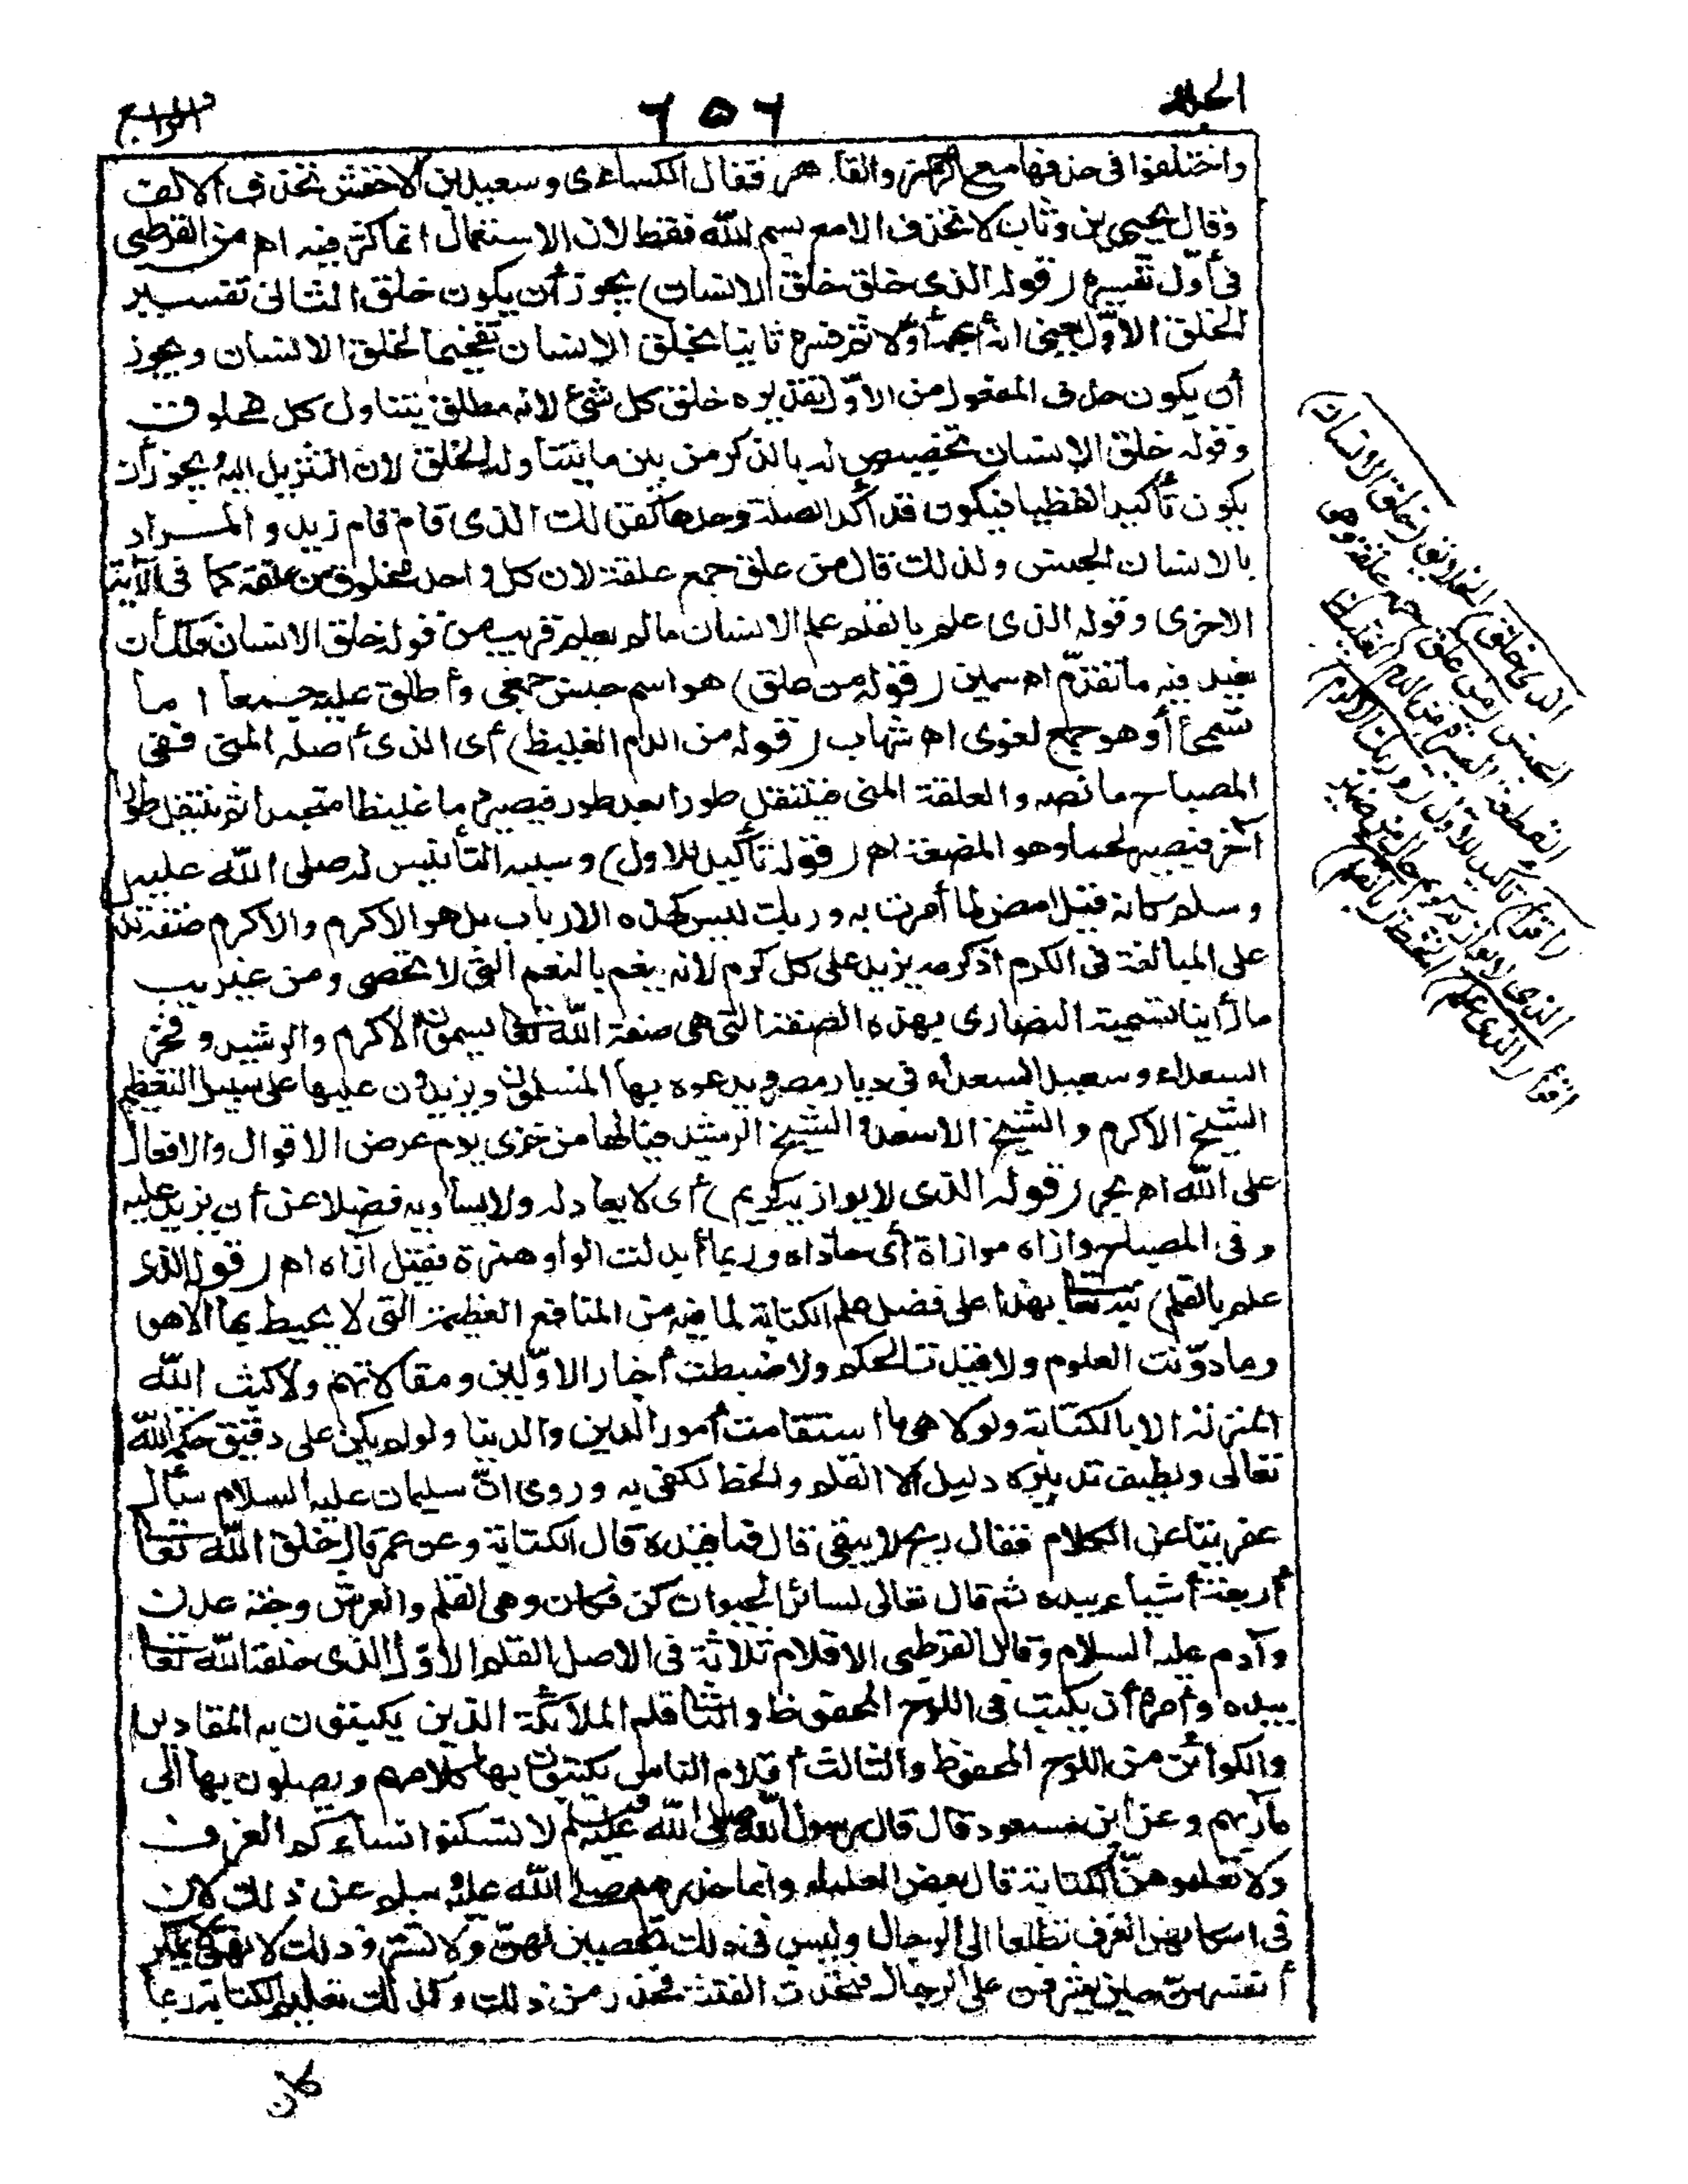 الجلد
٦٥٦
الرابع
واختلفوا في حذفها مع الرحمن والقاهر فقال الكسائي وسعيد بن الاخفش تحذف الالف
وقال يحيى بن وثاب لا تحذف الا مع بسم الله فقط لان الاستعمال انما كثر فيه اه من القرطبي
في أول تفسيره (قوله الذي خلق خلق الانسان) يجوز أن يكون خلق الثاني تفسير
الخلق الأول يعني انه أبهمه أولا ثم فسره ثانيا بخلق الانسان تفخيما لخلق الانسان ويجوز
أن يكون حذف المفعول من الأول تقديره خلق كل شئ لانه مطلق يتناول كل مخلوق
وقوله خلق الانسان تخصيص له بالذكر من بين ما يتناوله الخلق لان التنزيل اليه ويجوز أن
يكون تأكيدا لفظيا فيكون قد أكد الصلة وحدها كقولك الذي قام قام زيد والمراد
بالانسان الجنس ولذلك قال من علق جمع علقة لان كل واحد مخلوق من علقة كما في الآية
الاخرى وقوله الذي علم بالقلم علم الانسان مالم يعلم قريب من قوله خلق الانسان فلك أن
تعيد فيه ما تقدم اه سمين (قوله من علق) هو اسم جنس جمعي وأطلق عليه جمعا اما
تسمحا أو هو جمع لغوى اه شهاب (قوله من الدم الغليظ) أى الذى أصله المنى ففى
المصباح ما نصه والعلقة المنى ينتقل طورا بعد طور فيصير دما غليظا متجمدا ثم ينتقل طورا
آخر فيصير لحما وهو المضغة اه (قوله تأكيد للاول) وسببه التأنيس له صلى الله عليه
وسلم كانه قيل امض لما أمرت به وربك ليس كهذه الارباب بل هو الاكرم والاكرم صفة تدل
على المبالغة فى الكرم اذ كرمه يزيد على كل كرم لانه ينعم بالنعم التى لا تحصى ومن غريب
ما رأينا تسمية النصارى بهذه الصفة التى هى صفة الله تعالى يسمون الاكرم والرشيد وفخر
السعداء وسعيد السعداء فى ديار مصر ويدعوه بها المسلمون ويزيدون عليها على سبيل التعظيم
الشيخ الاكرم والشيخ الاسعد والشيخ الرشيد فيالها من خزى يوم عرض الاقوال والافعال
على الله اه بحر (قوله الذى لا يوازيه كريم) أى لا يعادله ولا يساويه فضلا عن أن يزيد عليه
وفى المصباح وازاه موازاة أى حاذاه وربما أبدلت الواو همزة فقيل آزاه اه (قوله الذى
علم بالقلم) نبه تعالى بهذا على فضل علم الكتابة لما فيه من المنافع العظيمة التى لا يحيط بها الا هو
وما دونت العلوم ولا قيدت الحكم ولا ضبطت أخبار الاولين ومقالاتهم ولا كتب الله
المنزلة الا بالكتابة ولولا هى ما استقامت أمور الدين والدنيا ولو لم يكن على دقيق حكم الله
تعالى ولطيف تدبيره دليل الا القلم والخط لكفى به وروى أن سليمان عليه السلام سأل
عفريتا عن الكلام فقال ريح لا يبقى قال فما قيده قال الكتابة وعن عمر قال خلق الله تعالى
أربعة أشياء بيده ثم قال تعالى لسائر الحيوان كن فكان وهى القلم والعرش وجنة عدن
وآدم عليه السلام وقال القرطبى الاقلام ثلاثة فى الاصل القلم الاول الذى خلقه الله تعالى
بيده وأمره أن يكتب فى اللوح المحفوظ والثانى قلم الملائكة الذين يكتبون به المقادير
والكوائن من اللوح المحفوظ والثالث أقلام الناس يكتبون بها كلامهم ويصلون بها الى
مآربهم وعن ابن مسعود قال قال رسول الله صلى الله عليه وسلم لا تسكنوا نساءكم الغرف
ولا تعلموهن الكتابة قال بعض العلماء وانما حذرهم صلى الله عليه وسلم عن ذلك لان
فى اسكانهن الغرف تطلعا الى الرجال وليس فى ذلك تحصين لهن ولا تستر وذلك لانهن لا يملكن
أنفسهن حين يشرفن على الرجال فتحدث الفتنة فحذر من ذلك وكذلك تعليم الكتابة ربما
كان
الذى خلق) الخلائق (خلق الانسان)
الجنس (من علق) جمع علقة وهى
القطعة اليسيرة من الدم الغليظ
(اقرأ) تأكيد للاول (وربك الاكرم)
الذى لا يوازيه كريم حال من ضمير
اقرأ (الذى علم) الخط (بالقلم)